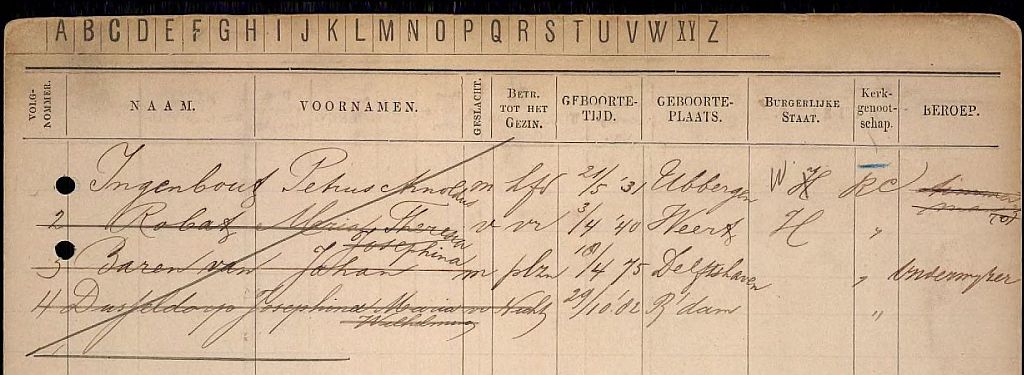 A B C D E F G H I J K L M N O P Q R S T U V W XY Z
VOLG-NOMMER. NAAM. VOORNAMEN. GESLACHT. BETR. TOT HET GEZIN. GEBOORTE-TIJD. GEBOORTE-PLAATS. BURGERLIJKE STAAT. Kerk-genoot-schap. BEROEP.
Ingenhout Petrus Arnoldus m hfd 21/5 '31 Ubbergen W H RC
2 Robat Maria Theresia Josephina v vr 3/4 '40 Weert H "
3 Baren van Johan m plzn 18/4 75 Delfshaven " Onderwyzer
4 Dusseldorp Josephina Maria Wilhelmina v Nicht 29/10.02 R'dam "